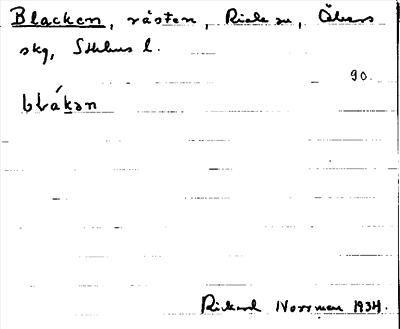 Blacken, rästen, Riala sn, Åkers
skg, Sthlms l.
90.
blákən
Rickard Norrman 1934.